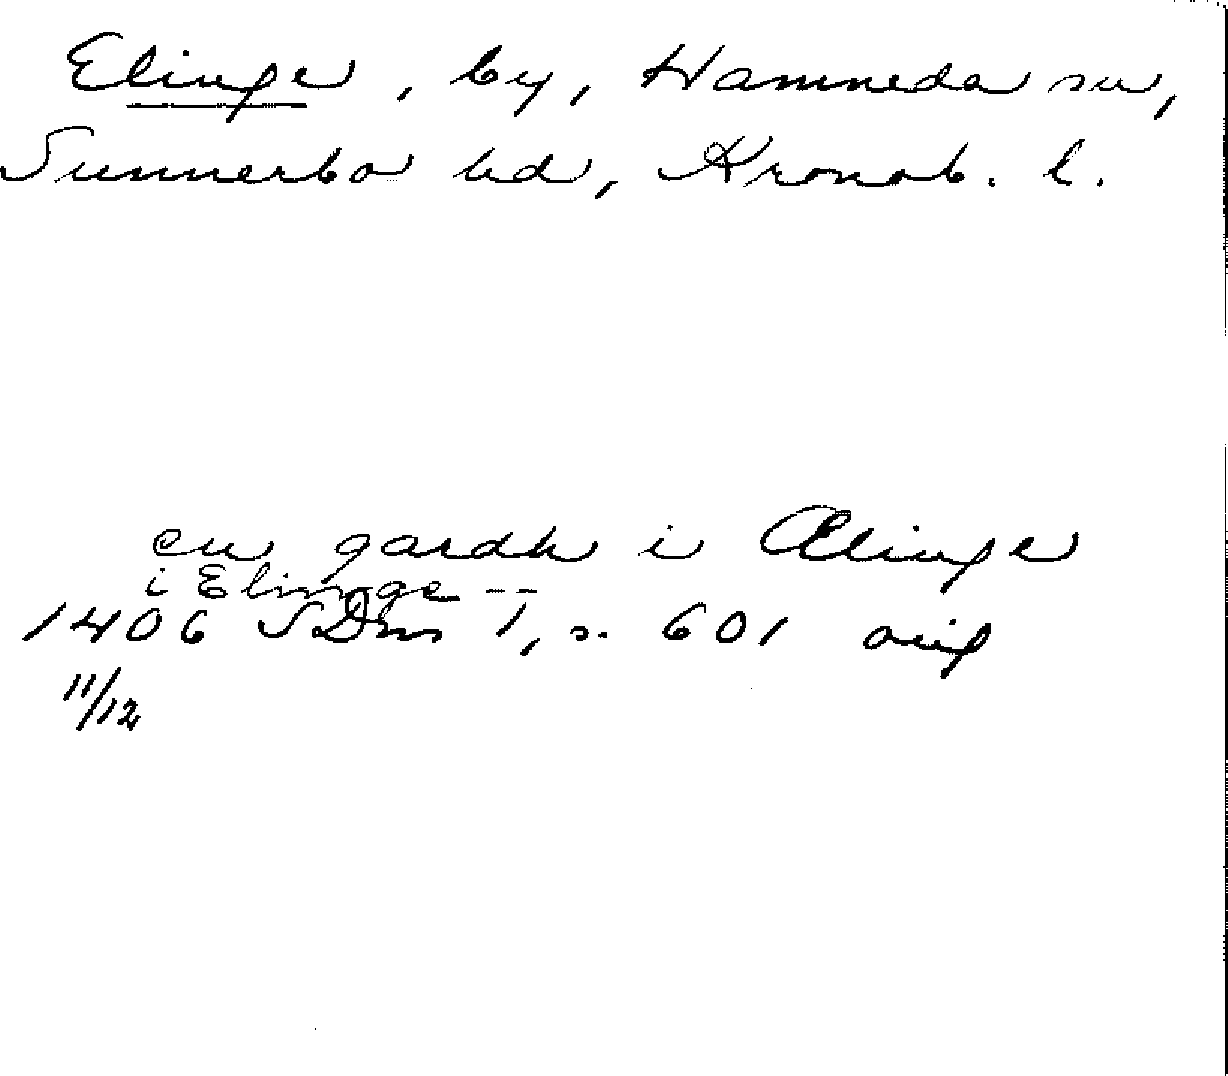 Elinge, by, Hamneda sn,
Sunnerbo hd, Kronob. l.
en gardh i Ælinge
i Elingge --
1406 SDns 1, s. 601 orig
11/12